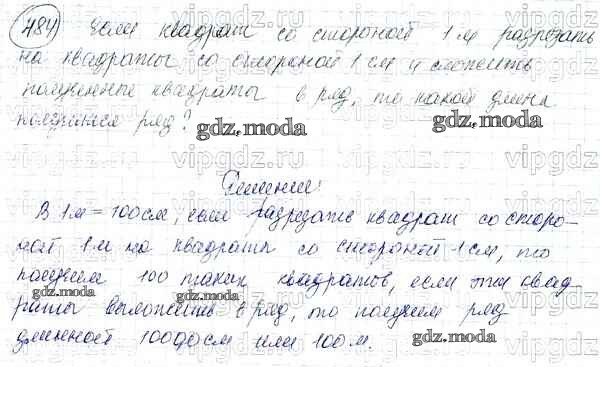 484) Если квадрат со стороной 1 м разрезать
на квадраты со стороной 1 см и сложить
полученные квадраты в ряд, то какой длины
получится ряд?
gdz.moda gdz.moda
Решение:
В 1 м = 100 см, если разрезать квадрат со сторо-
ной 1 м на квадраты со стороной 1 см, то
получим 100 таких квадратов, если эти квад
gdz.moda gdz.moda
раты выложить в ряд, то получим ряд
длинной 10000 см или 100 м.
gdz.moda
vipgdz.ru